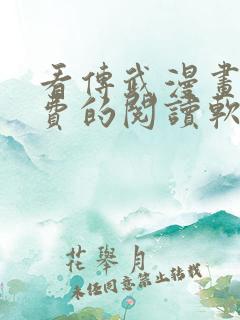 看傳武漫畫
費的閱讀軟
花舉月
未经同意禁止转载